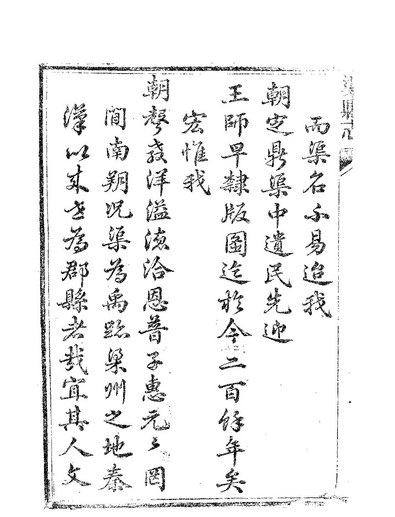 而渠名不易迨我
朝定鼎渠中遺民先迎
王師早隸版圖迄於今二百餘年矣
宏惟我
朝聲教洋溢浹洽恩普子惠元々罔
間南朔况渠為禹跡梁州之地秦
漢以来已為郡縣者哉宜其人文